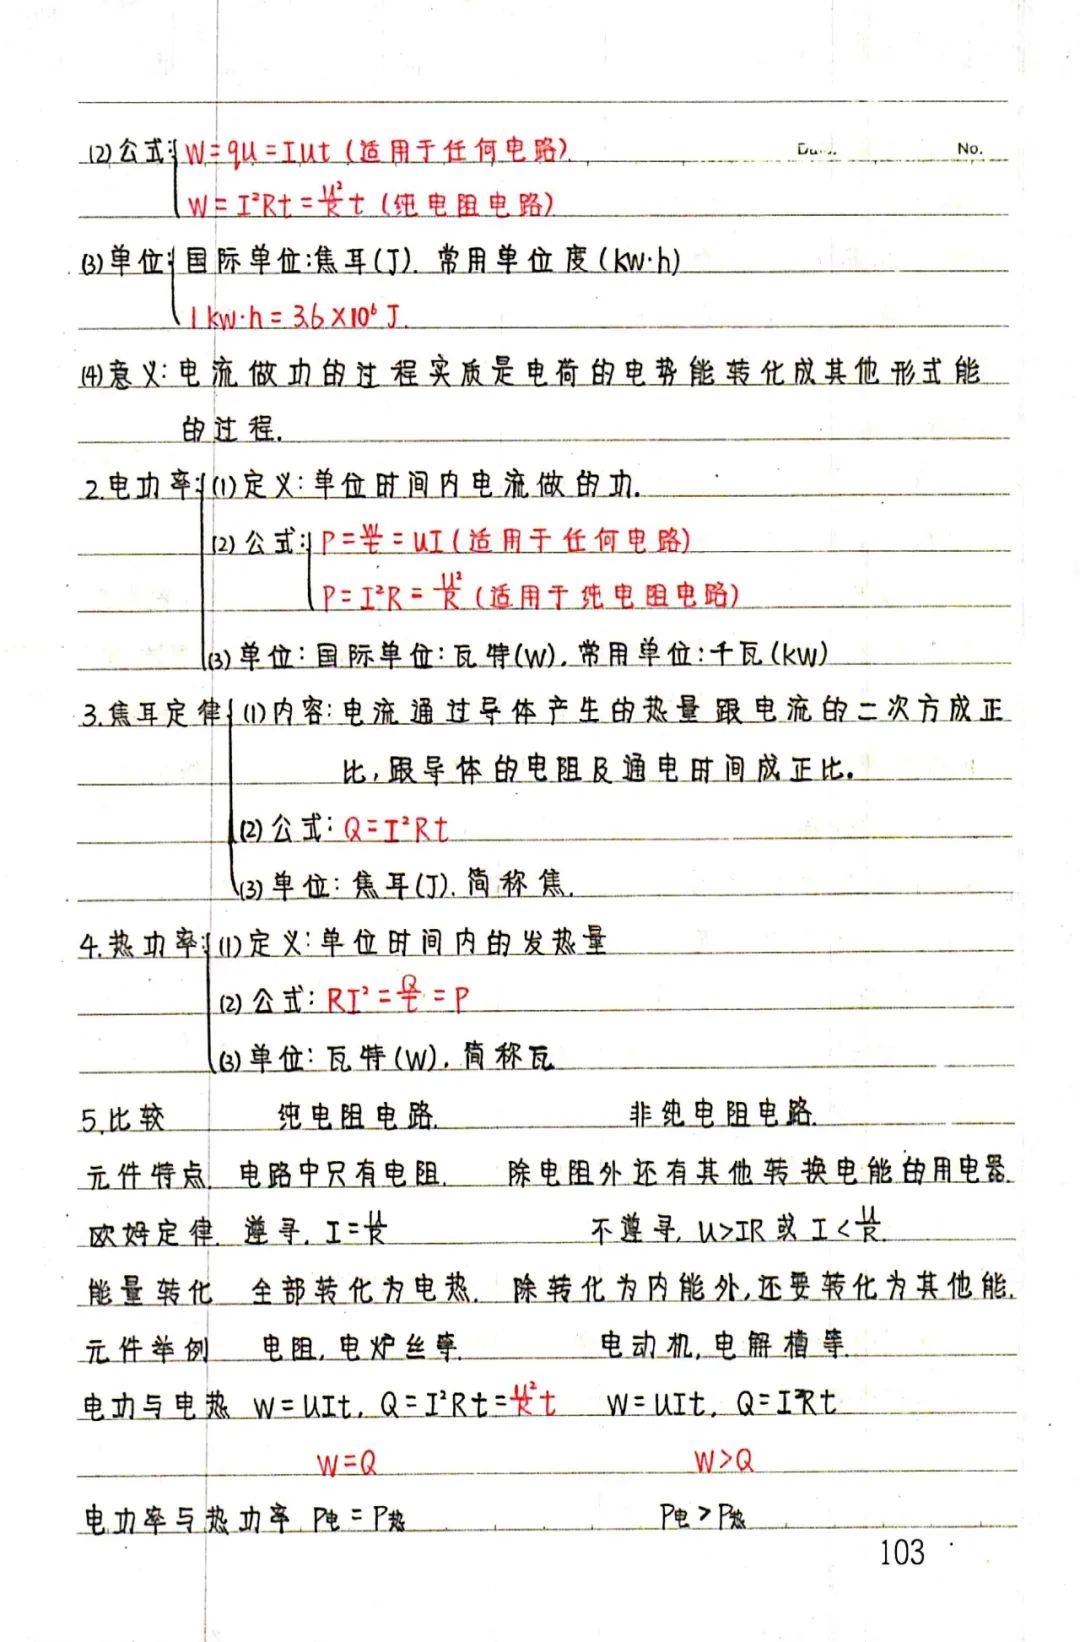 Date. No.
(2)公式: W=qU=IUt (适用于任何电路).
W=I²Rt=U²/R t (纯电阻电路)
(3)单位: 国际单位:焦耳(J). 常用单位度(kW·h)
1kW·h=3.6×10⁶J.
(4)意义: 电流做功的过程实质是电荷的电势能转化成其他形式能
的过程.
2.电功率: (1)定义: 单位时间内电流做的功.
(2)公式: P=W/t=UI (适用于任何电路)
P=I²R=U²/R (适用于纯电阻电路)
(3)单位: 国际单位: 瓦特(W). 常用单位:千瓦(kW)
3.焦耳定律 (1)内容: 电流通过导体产生的热量跟电流的二次方成正
比,跟导体的电阻及通电时间成正比.
(2)公式: Q=I²Rt
(3)单位: 焦耳(J). 简称焦.
4.热功率: (1)定义: 单位时间内的发热量
(2)公式: RI²=Q/t=P
(3)单位: 瓦特(W). 简称瓦
5.比较 纯电阻电路. 非纯电阻电路.
元件特点. 电路中只有电阻. 除电阻外还有其他转换电能的用电器.
欧姆定律. 遵寻. I=U/R 不遵寻, U>IR或I<U/R.
能量转化 全部转化为电热. 除转化为内能外,还要转化为其他能.
元件举例 电阻,电炉丝等. 电动机,电解槽等.
电功与电热 W=UIt, Q=I²Rt=U²/R t W=UIt, Q=I²Rt
W=Q W>Q
电功率与热功率 P电=P热 P电>P热
103